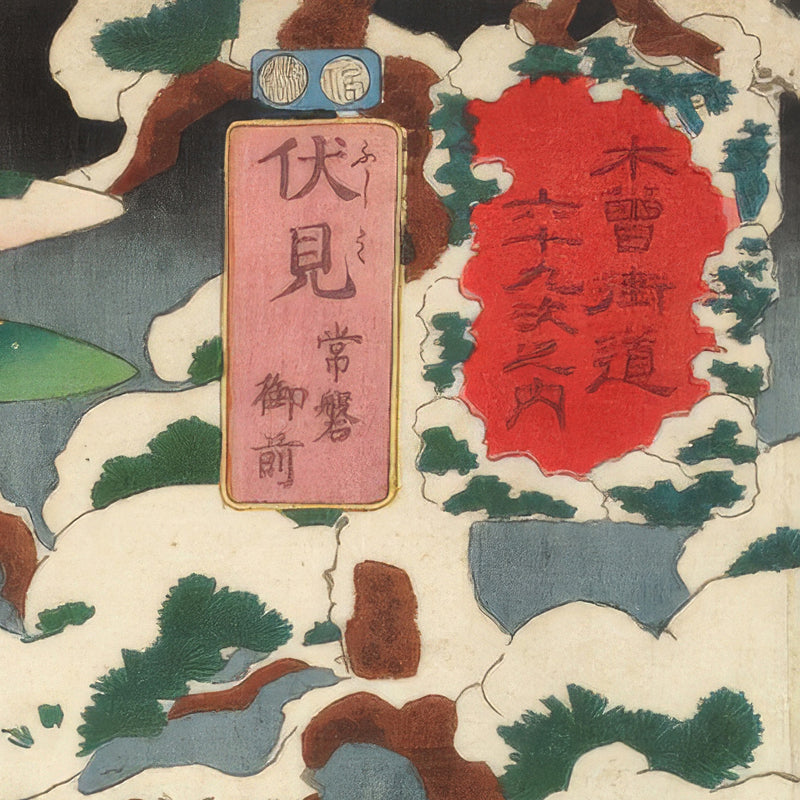 木曾街道
六十九次之内
伏見
ふし
常磐
御前